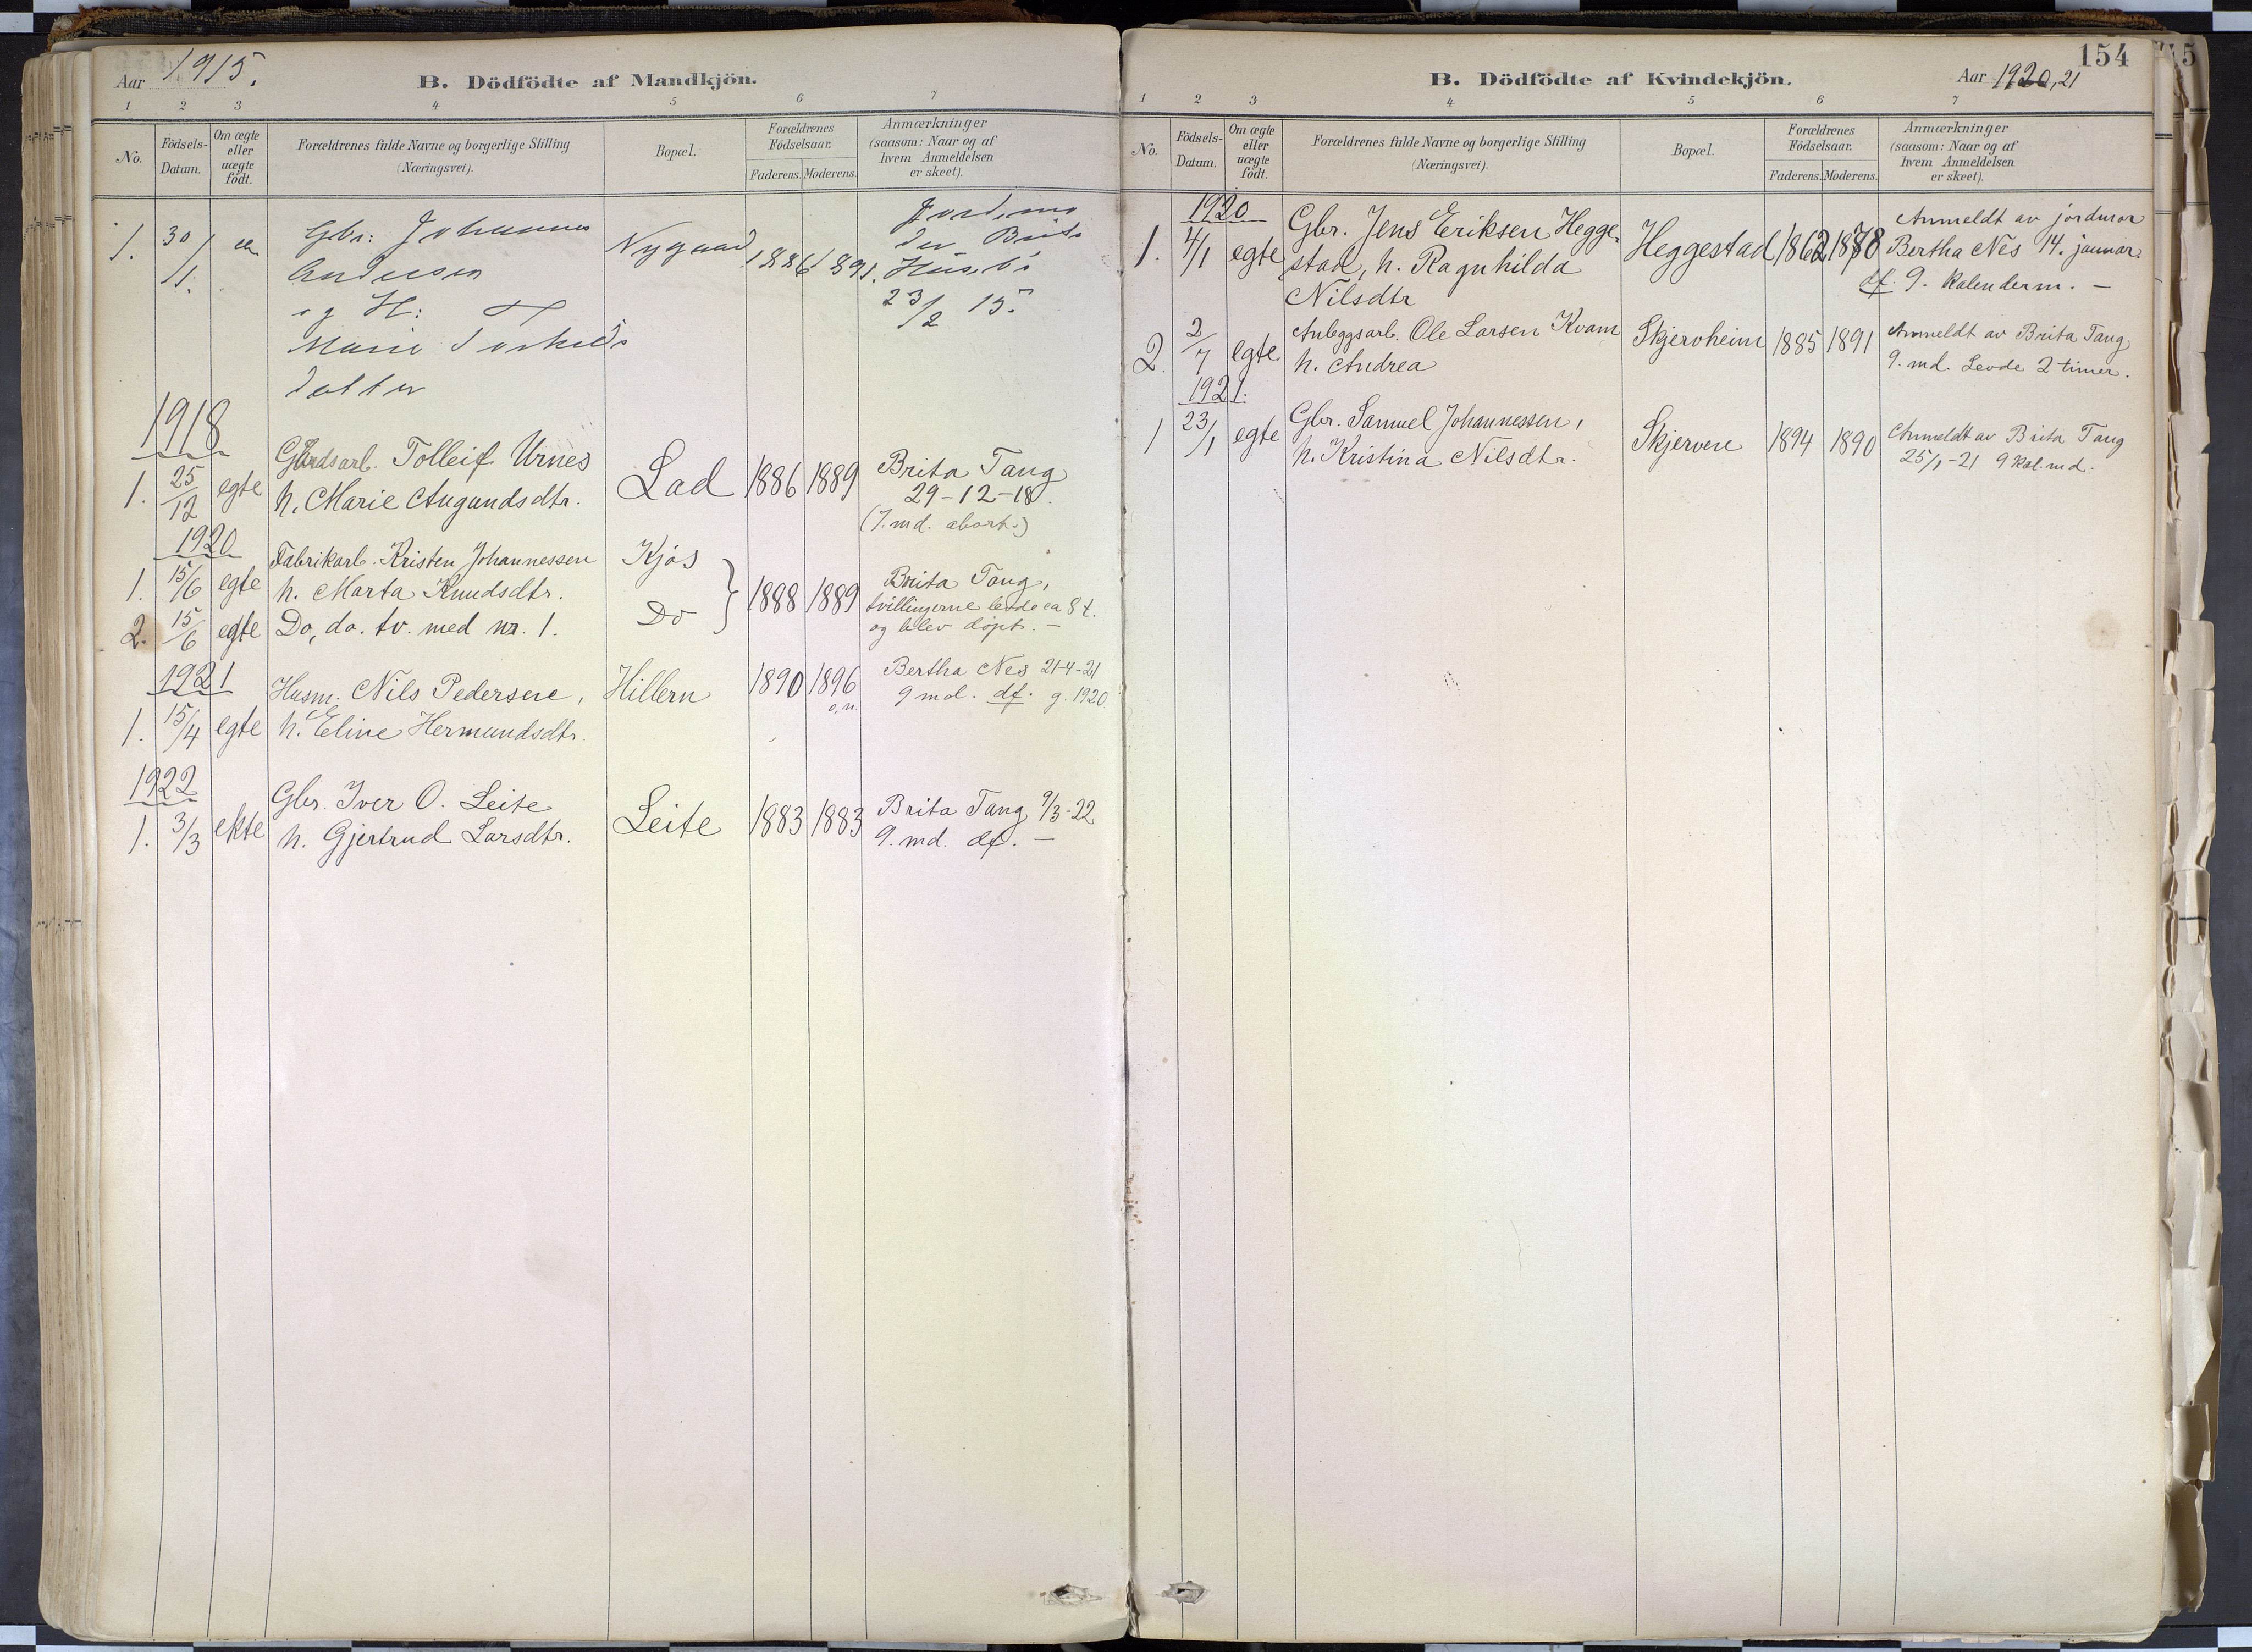 Aar 1915.
B. Dödfödte af Mandkjön.
1 2 3 4 5 6 7
No.
Födsels-
Datum.
Om ægte
eller
uægte
födt.
Forældrenes fulde Navne og borgerlige Stilling
(Næringsvei).
Bopæl.
Forældrenes
Födselsaar.
Faderens. Moderens.
Anmærkninger
(saasom: Naar og af
hvem Anmeldelsen
er skeet).
1. 30/1. Gbr: Johannes Nygaard 1886 1891. Jordmo
Andersen der Brita
og H: 23/2 15.
Marie
datter
1918
Gårdsarb. Tolleif Urnes
1. 25/12 egte h. Marie Augundsdtr. Lad 1886 1889 Brita Tang
29-12-18.
(7. md. abort.)
1920
Fabrikarb. Kristen Johannessen Kjøs
1. 15/6 egte h. Marta Knudsdtr. } 1888 1889 Brita Tang,
tvillingerne levde ca 8 t.
2. 15/6 egte Do, do. tv. med nr. 1. Do og blev døpt. —
1921
Husm. Nils Pedersen, Hillern 1890 1896 Bertha Nes 21-4-21
9 md. df. g. 1920.
1. 15/4 egte h. Eline Hermundsdtr.
1922
Gbr. Iver O. Leite
1. 3/3 ekte h. Gjertrud Larsdtr. Leite 1883 1883 Brita Tang 9/3-22
9. md. df. —
154
B. Dödfödte af Kvindekjön.
Aar 1920, 21
1 2 3 4 5 6 7
No.
Födsels-
Datum.
Om ægte
eller
uægte
födt.
Forældrenes fulde Navne og borgerlige Stilling
(Næringsvei).
Bopæl.
Forældrenes
Födselsaar.
Faderens. Moderens.
Anmærkninger
(saasom: Naar og af
hvem Anmeldelsen
er skeet).
1920
1. 4/1 egte Gbr. Jens Eriksen Hegge- Heggestad 1862 1878 Anmeldt av jordmor
stad, h. Ragnhilda Bertha Nes 14. januar.
Nilsdtr df. 9. kalenderm. —
2. 2/7 egte Anleggsarb. Ole Larsen Kvam Skjervheim 1885 1891 Anmeldt av Brita Tang
h. Andrea 9. md. Levde 2 timer.
1921.
1 23/1 egte Gbr. Samuel Johannessen, Skjerven 1894 1890 Anmeldt av Brita Tang
h. Kristina Nilsdtr. 25/1-21 9 kal. md.